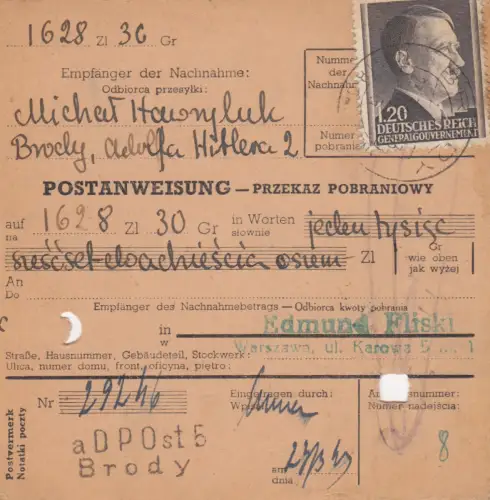 1628 Zl 30 Gr
Empfänger der Nachnahme:
Odbiorca przesyłki:
Michał Hawryluk
Brody, Adolfa Hitlera 2
Nummer
der
Nachnah
Numer
pobrani
1.20
DEUTSCHES REICH
GENERALGOUVERNEMENT
POSTANWEISUNG — PRZEKAZ POBRANIOWY
auf 1628 Zl 30 Gr in Worten jeden tysiąc
na słownie
sześset dwadzieścia osiem Zl Gr
wie oben
jak wyżej
An
Do
Empfänger des Nachnahmebetrags — Odbiorca kwoty pobrania
in Edmund Fliski
w Warszawa, ul. Karowa 5 1
Straße, Hausnummer, Gebäudeteil, Stockwerk:
Ulica, numer domu, front, oficyna, piętro:
Postvermerk
Notatki poczty
Nr 29246
Eingetragen durch:
nummer:
Numer nadejścia:
8
a DPOst 5
Brody
am
dnia